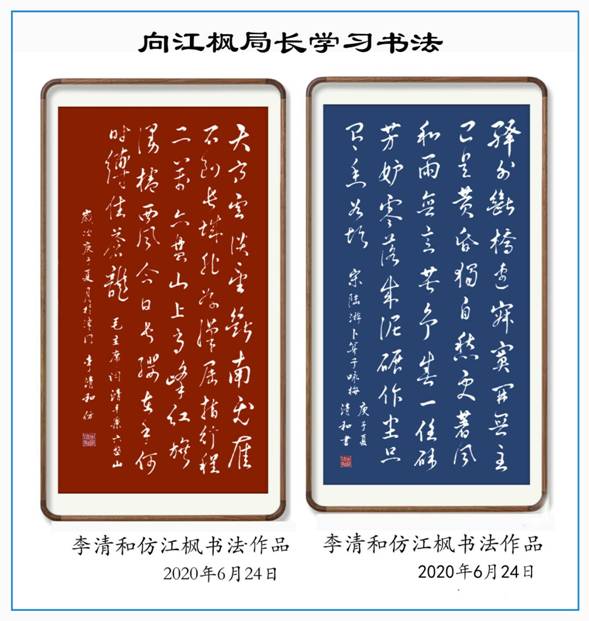 向江枫局长学习书法
天高雲淡望斷南飛雁
不到長城非好漢屈指行程
二萬六盘山上高峰红旗
漫捲西風今日長纓在手何
時縛住蒼龍 毛主席词清平樂六盘山
歲次庚子夏月於津门 李清和仿
驛外斷橋邊寂寞開無主
已是黄昏獨自愁更著風
和雨無意苦争春一任群
芳妒零落成泥碾作塵只
有香如故 宋陸游卜算子咏梅
庚子夏
清和書
李清和仿江枫书法作品
2020年6月24日
李清和仿江枫书法作品
2020年6月24日